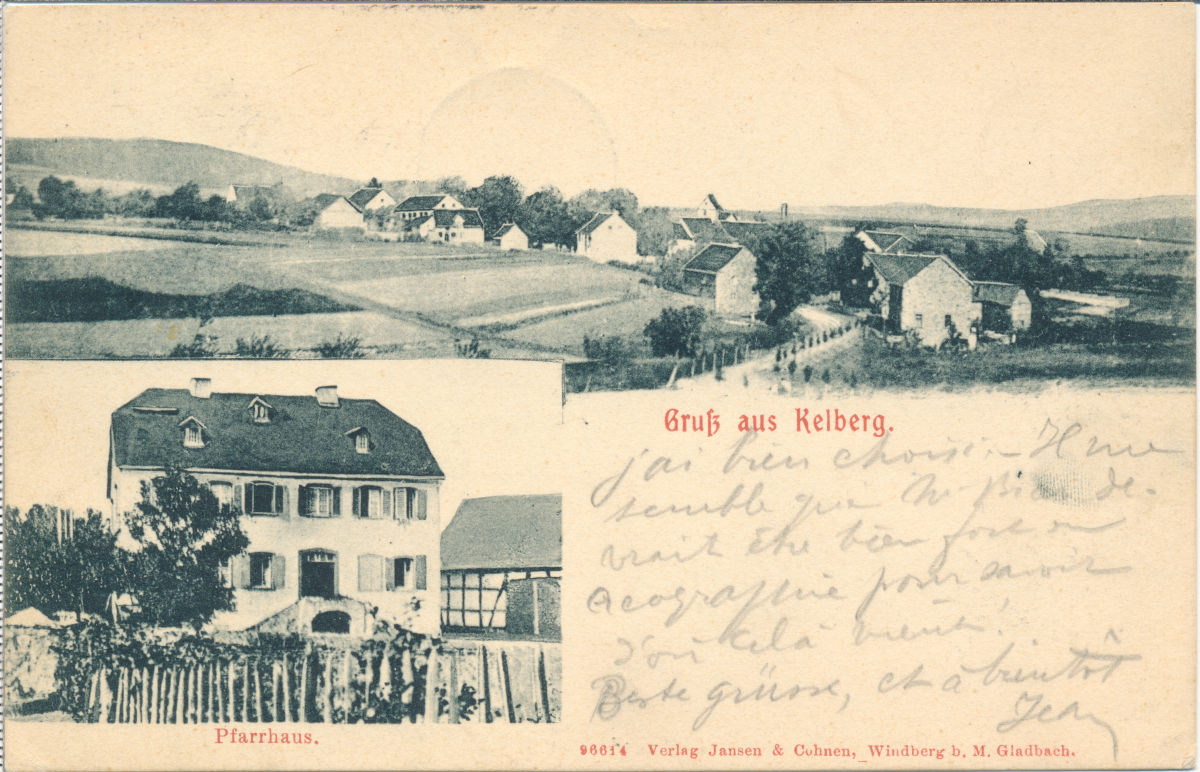 Gruß aus Kelberg.
j'ai bien choisi. Il me
semble que de-
vrait être bien fort en
Géographie pour savoir
d'où celà vient!
Beste grüsse, et à bientôt
Jean
Pfarrhaus.
96614 Verlag Jansen & Cohnen, Windberg b. M. Gladbach.